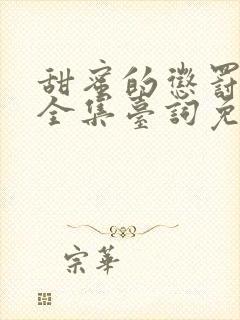 甜蜜的懲罰
全集臺詞免
宗華